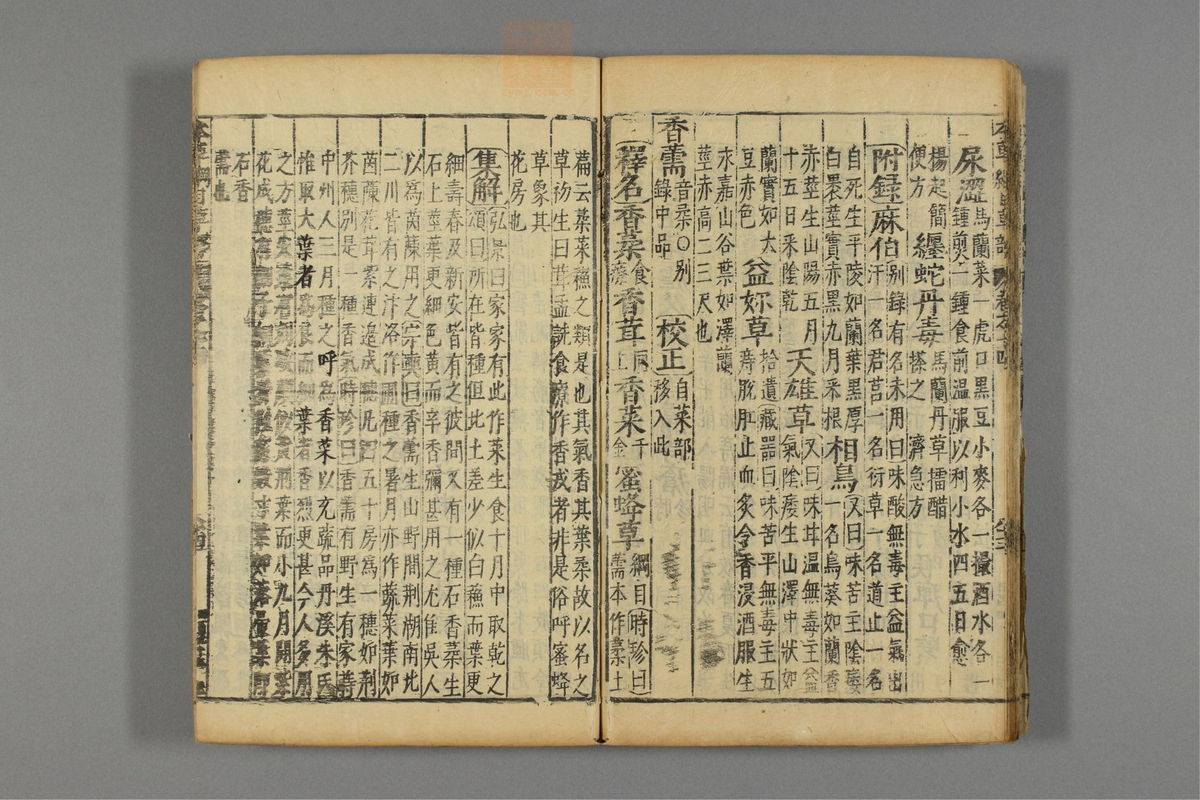 本草綱目草部 卷之十四
尿澀 馬蘭菜一虎口黑豆小麥各一撮酒水各一
鍾煎一鍾食前溫服以利小水四五日愈
楊起簡便方 纏蛇丹毒 馬蘭丹草擂醋搽之 濟急方
附錄麻伯 別錄有名未用曰味酸無毒主益氣出汗一名君莒一名衍草一名道止一名
自死生平陵如蘭葉黑厚白裹莖實赤黑九月采根 相烏 又曰味苦主陰痿一名烏葵如蘭香
赤莖生山陽五月十五日采陰乾 天雄草 又曰味甘溫無毒主益氣陰痿生山澤中狀如
蘭實如大豆赤色 益妳草 拾遺藏器曰味苦平無毒主五痔脫肛止血炙令香浸酒服生
永嘉山谷葉如澤蘭莖赤高二三尺也
香薷 音柔○別錄中品 校正 自菜部移入此
釋名香葇食療香茸同上香菜千金蜜蜂草綱目時珍曰薷本作葇玉
篇云葇菜蘇之類是也其氣香其葉柔故以名之
草初生曰茸孟詵食療作香戎者非是俗呼蜜蜂
草象其
花房也
集解 弘景曰家家有此作菜生食十月中取乾之
頌曰所在皆種但此土差少似白蘇而葉更
細壽春及新安皆有之彼間又有一種石香葇生
石上莖葉更細色黃而辛香彌甚用之尤佳吳人
以為茵蔯用之宗奭曰香薷生山野間荊湖南北
二川皆有之汴洛作圃種之暑月亦作蔬菜葉如
茵蔯花茸紫連邊成穗凡四五十房為一穗如荊
芥穗別是一種香氣時珍曰香薷有野生有家蒔
中州人三月種之呼為香菜以充蔬品丹溪朱氏
惟取大葉者為良而細葉者香烈更甚今人多用
之方莖尖葉有刻缺頗似黃荊葉而小九月開紫
花成穗有細子細葉者僅高數寸葉如落帚葉即
石香
薷也